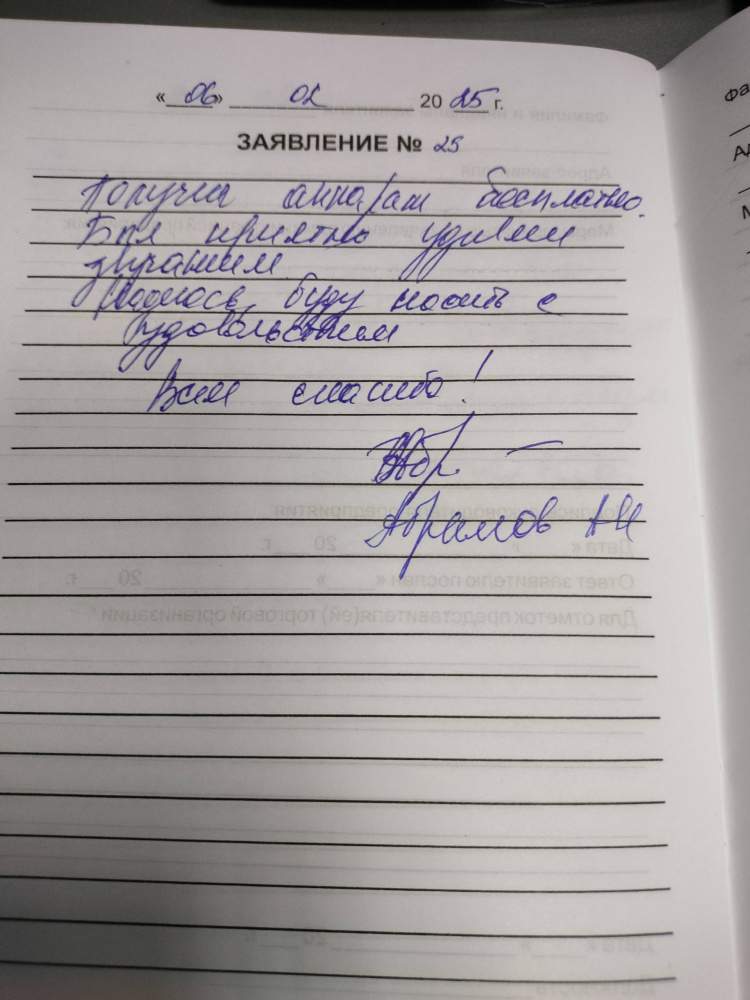 « 06 » 02 20 25 г.
ЗАЯВЛЕНИЕ № 25
Получил аппарат бесплатно.
Был приятно удивлен
звучанием
Надеюсь, буду носить с
удовольствием
Всем спасибо!
Абрамов АИ